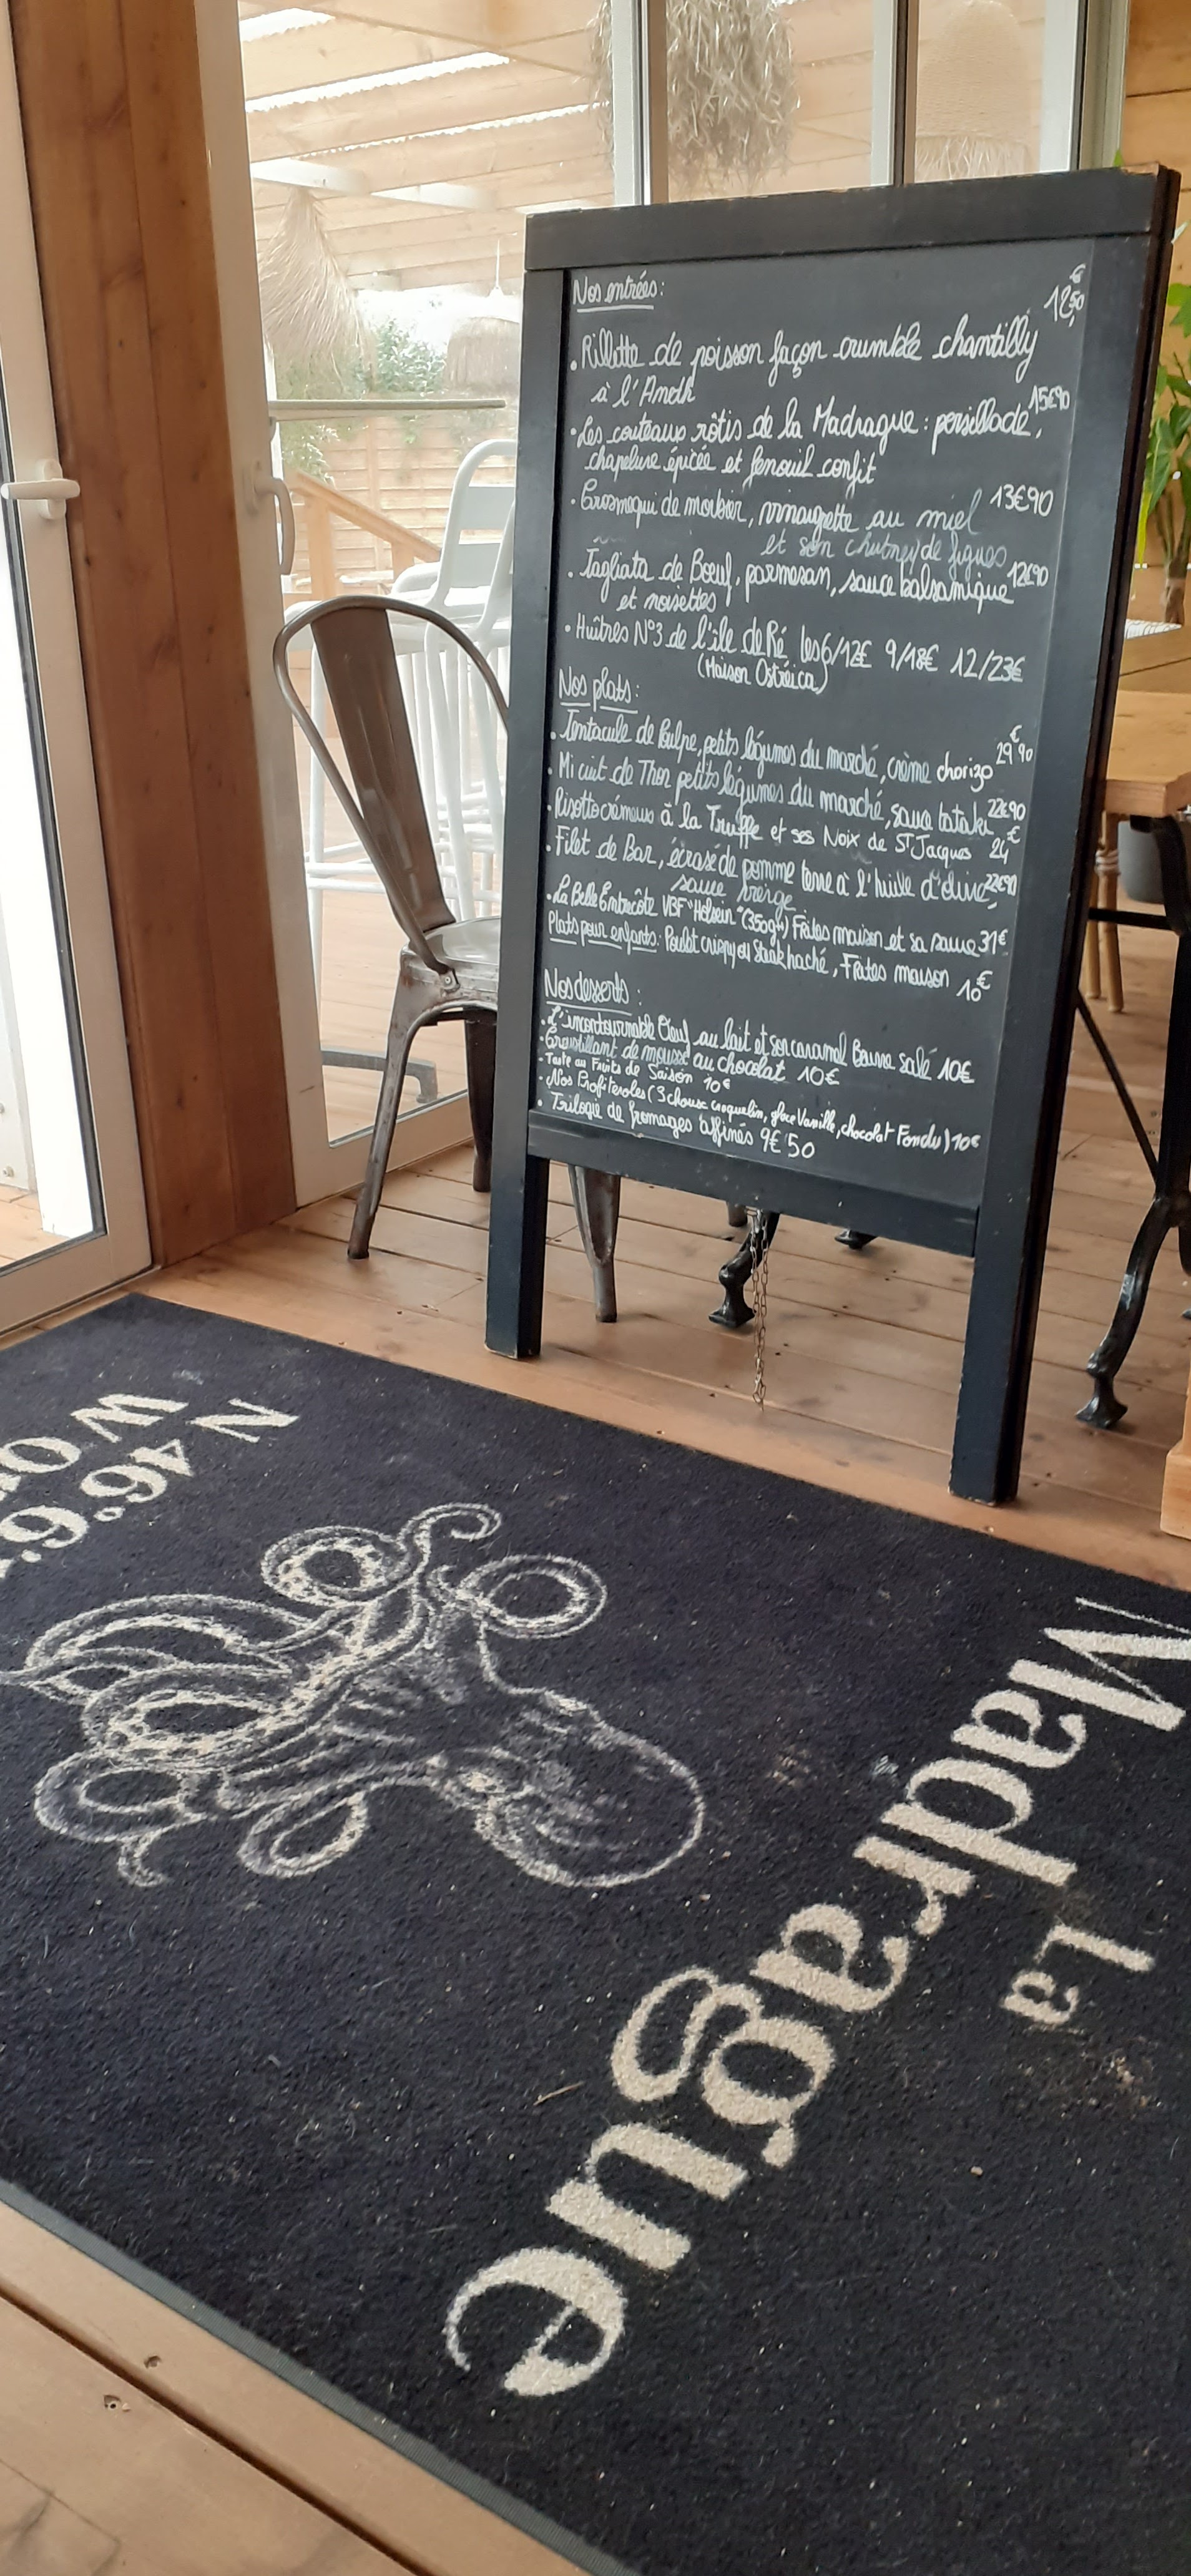 Nos entrées : 12,50€
• Rillette de poisson façon crumble chantilly
à l'Aneth
• Les couteaux rôtis de la Madrague : persillade, 15€90
chapelure épicée et fenouil confit
• Cromesqui de morbier, vinaigrette au miel 13€90
et son chutney de figues
• Tagliata de Bœuf, parmesan, sauce balsamique 12€90
et noisettes
• Huîtres N°3 de l'île de Ré les 6/12€ 9/18€ 12/23€
(Maison Ostréica)
Nos plats :
• Tentacule de Poulpe, petits légumes du marché, crème chorizo 29€90
• Mi cuit de Thon petits légumes du marché, sauce tataki 22€90
• Risotto crémeux à la Truffe et ses Noix de St Jacques 24€
• Filet de Bar, écrasé de pomme terre à l'huile d'olive, 22€90
sauce vierge
• La Belle Entrecôte VBF "Holstein" (350gr) Frites maison et sa sauce 31€
Plats pour enfants : Poulet crispy ou Steak haché, Frites maison 10€
Nos desserts :
• L'incontournable Œuf au lait et son caramel Beurre salé 10€
• Croustillant de mousse au chocolat 10€
- Tarte au Fruits de Saison 10€
- Nos Profiteroles (3 choux craquelin, glace Vanille, chocolat Fondu) 10€
• Trilogie de fromages affinés 9€50
La
Madrague
N 46° 6.
W 0